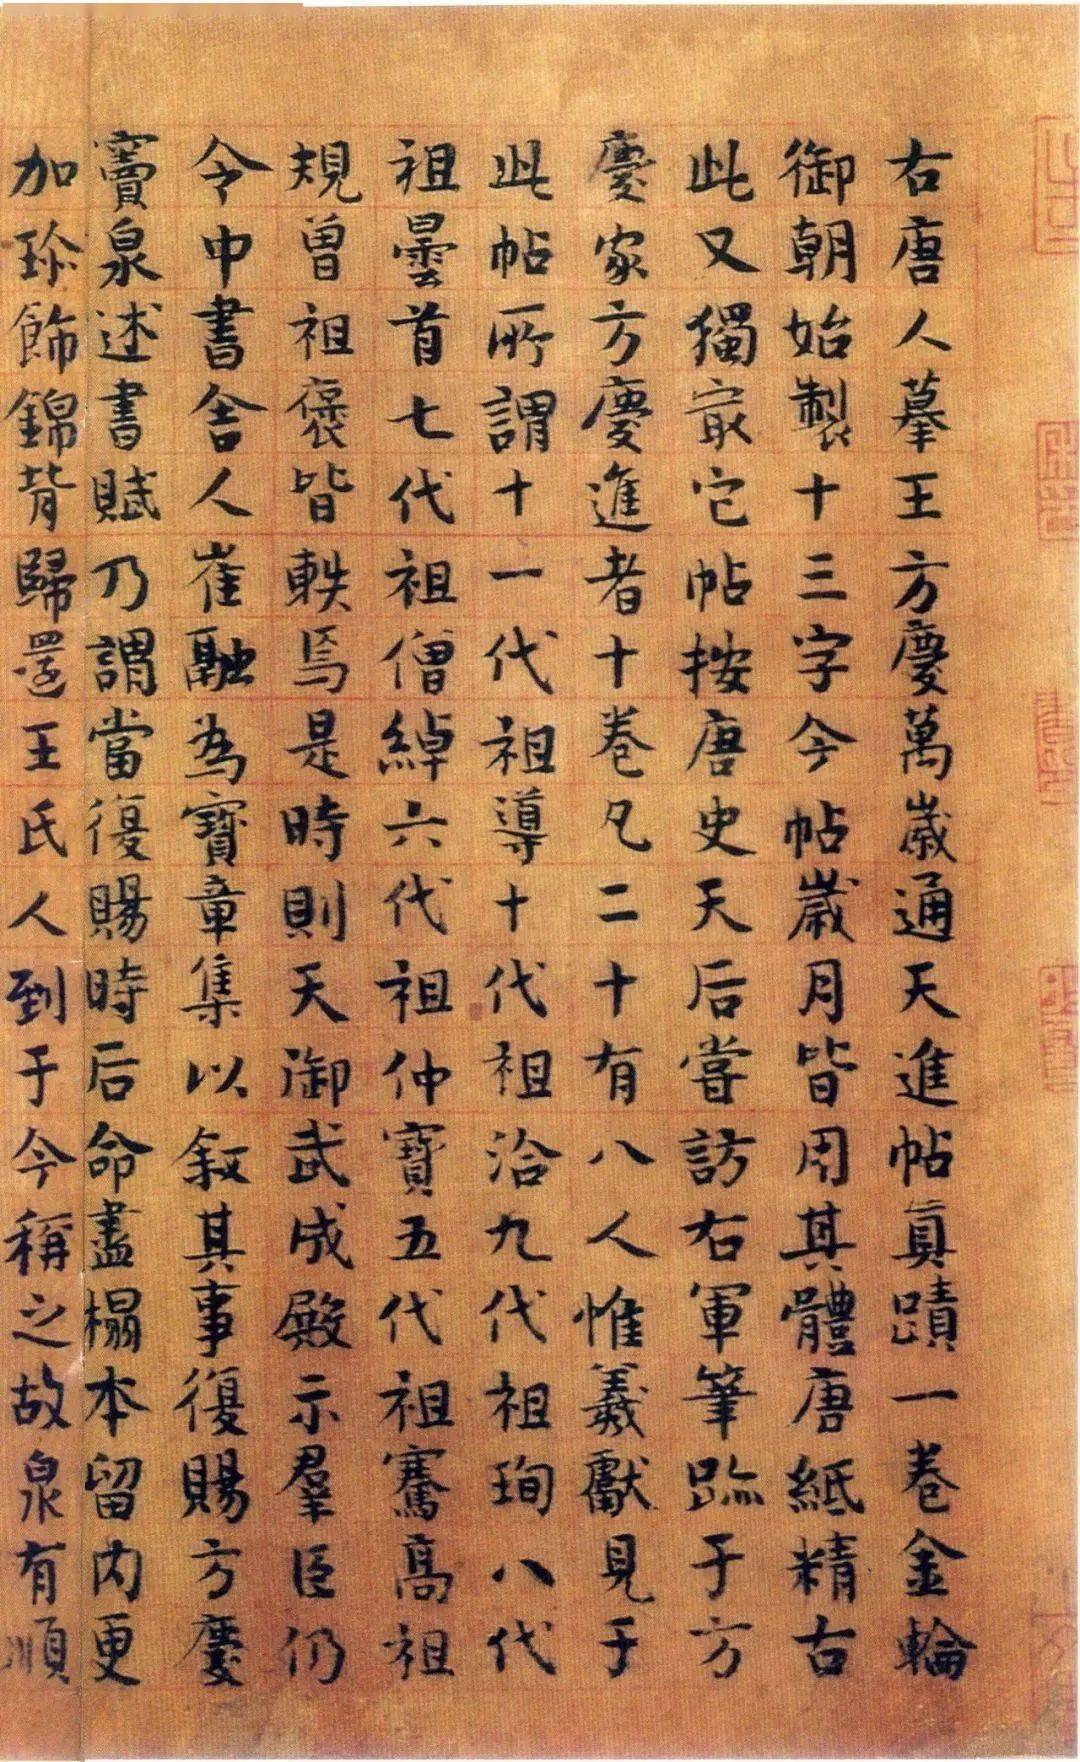 右唐人摹王方慶萬歲通天進帖真蹟一卷金輪
御朝始製十三字今帖歲月皆用其體唐紙精古
此又獨冣它帖按唐史天后嘗訪右軍筆跡于方
慶家方慶進者十卷凡二十有八人惟羲獻見于
此帖所謂十一代祖導十代祖洽九代祖珣八代
祖曇首七代祖僧綽六代祖仲寶五代祖騫高祖
規曾祖褒皆軼焉是時則天御武成殿示羣臣仍
令中書舍人崔融為寶章集以敘其事復賜方慶
竇泉述書賦乃謂當復賜時后命盡榻本留內更
加珍飾錦背歸還王氏人到于今稱之故泉有順